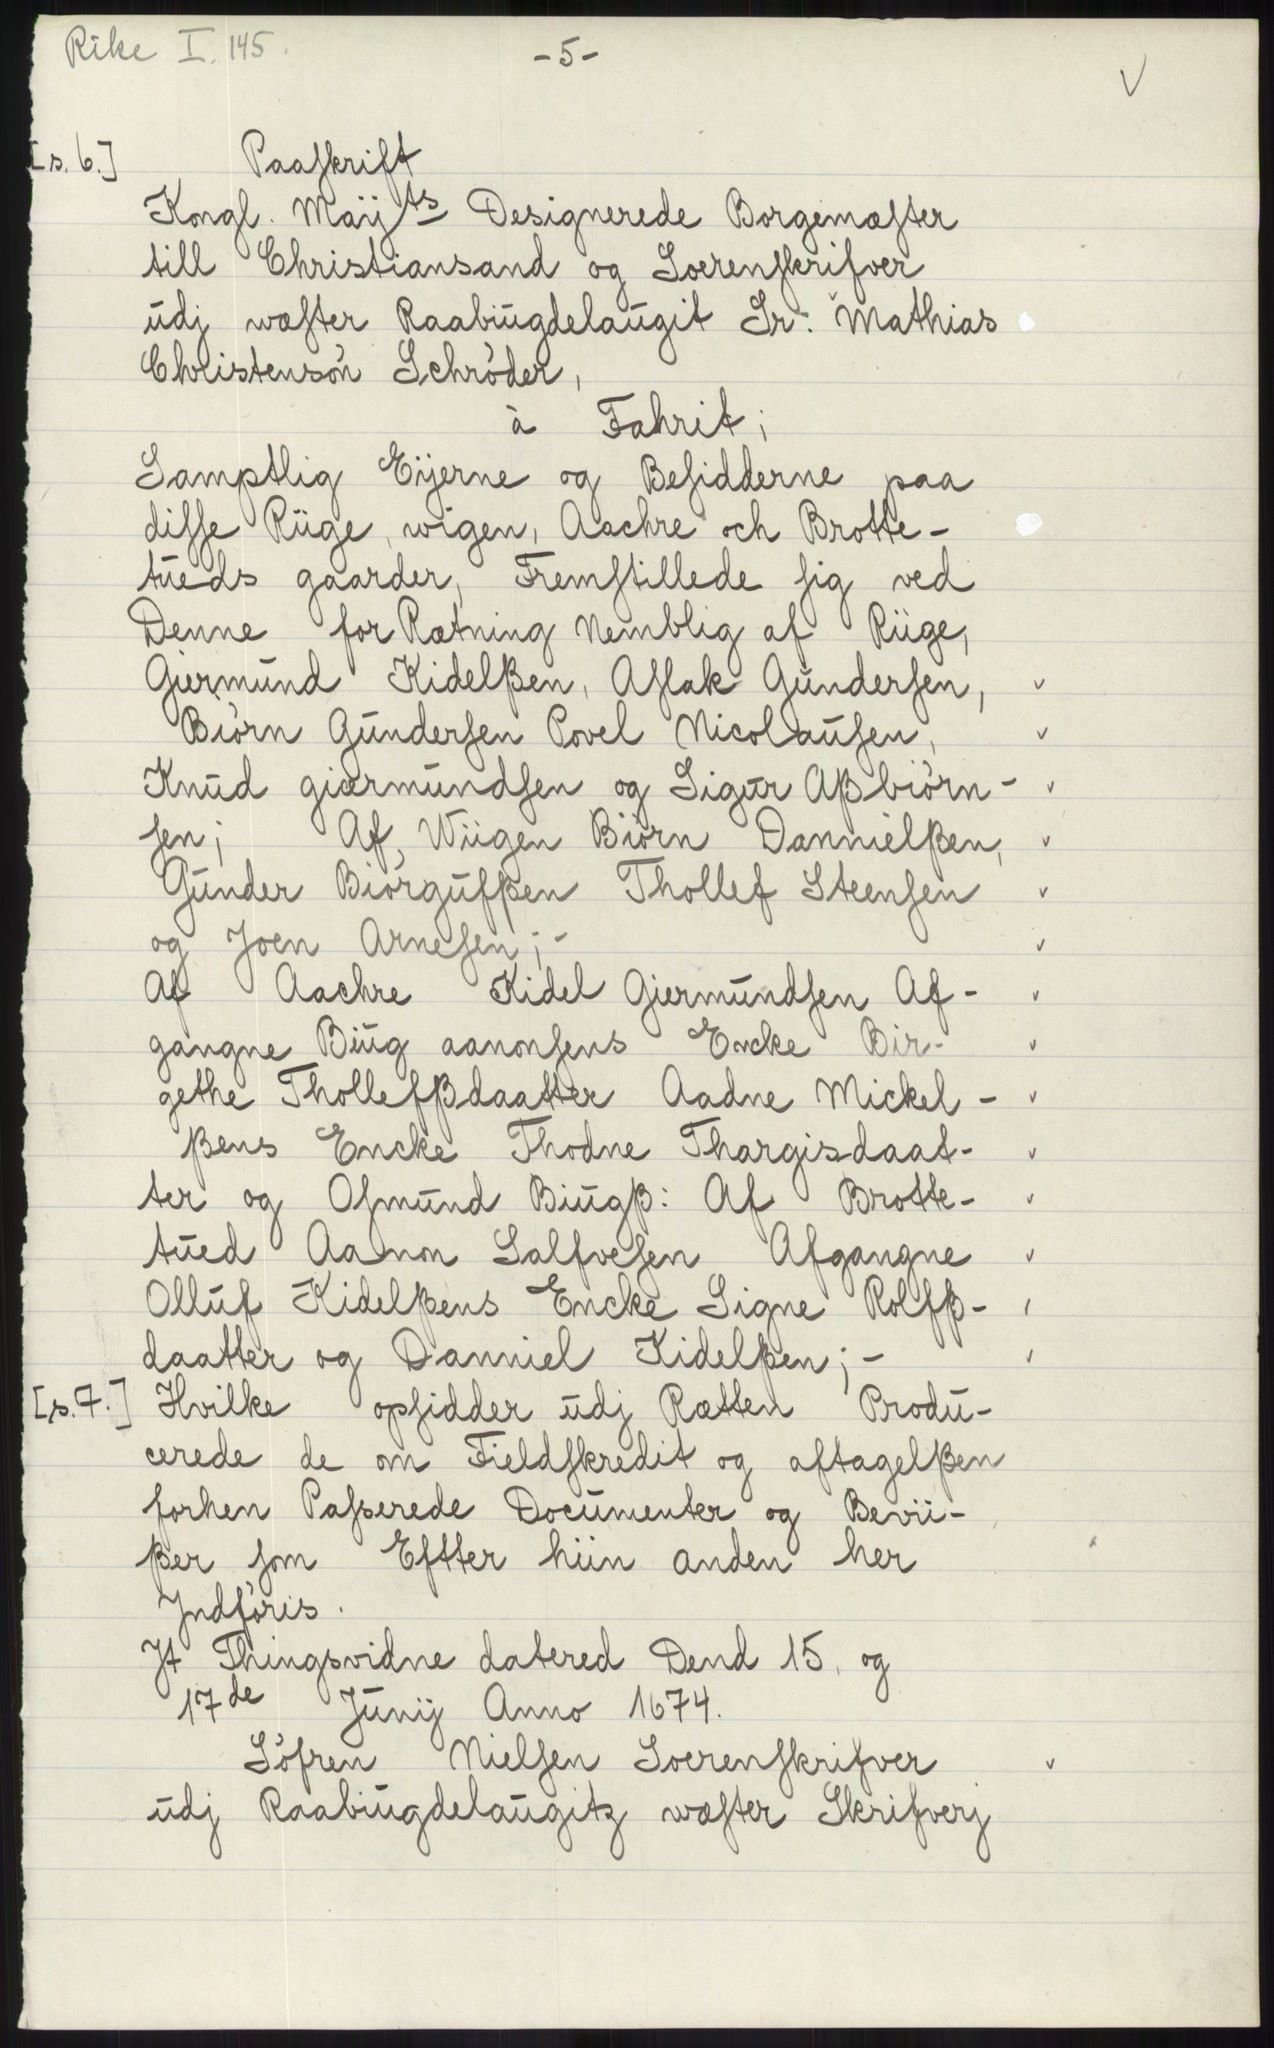 Rike I. 145.
-5-
[s. 6.] Paaskrift
Kongl. Maÿts Designerede Borgemæster
till Christiansand og Soerenskrifver
udj wæster Raabiugdelaugit Sr. Mathias
Christensön Schröder,
à Fahrit;
Samptlig Eÿerne og Besidderne paa
disse Riige, wigen, Aachre och Brotte-
tueds gaarder, Fremstillede sig ved
Denne forRætning Nemblig af Riige,
Giermund Kidelßen, Aslak Gundersen,
Biörn Gundersen Povel Nicolausen,
Knud giærmundsen og Sigur Aßbiörn-
sen; Af, Wiigen Biörn Dannielßen,
Gunder Biörgufßen Thollef Steensen
og Joen Arnesen;-
Af Aachre Kidel Giermundsen Af-
gangne Biug aanonsens Encke Bir-
gethe Thollefßdaatter Aadne Mickel-
ßens Encke Thodne Thargisdaat-
ter og Osmund Biugß: Af Brotte-
tued Aanon Salfvesen Afgangne
Olluf Kidelßens Encke Signe Rolfß-
daatter og Danniel Kidelßen;-
[s. 7.] Hvilke opsidder udj Rætten Produ-
cerede de om Fieldskredit og aftagelßen
forhen Passerede Documenter og Bevii-
ßer som Eftter hiin anden her
Jndföris.
Jt Thingsvidne datered Dend 15, og
17de Junij Anno 1674.
Söfren Nielsen Soerenskrifver
udj Raabiugdelaugitz wæster Skrifverj